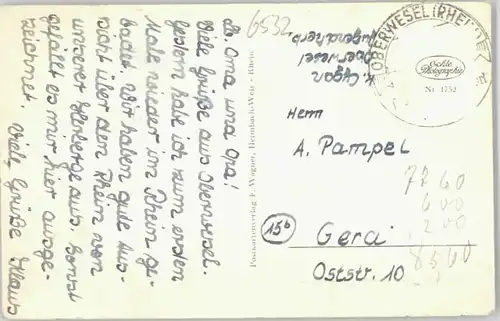 Lb Oma und Opa!
Viele Grüße aus Oberwesel.
Gestern habe ich zum ersten
Male wieder im Rhein ge-
badet. Wir haben gute Aus-
sicht über den Rhein von
unserer Herberge aus. Sonst
gefällt es mir hier ausge-
zeichnet. Viele Grüße Klaus
6532
K. Cygan
Oberwesel
Jugendherb.
OBERWESEL (RHEIN)
Echte
Photographie
Nr. 1752
Postkartenverlag E. Wagner, Heimbach-Weis - Rhein
Herrn
A. Pampel
15b
Gera
Oststr. 10
7760
600
200
8560